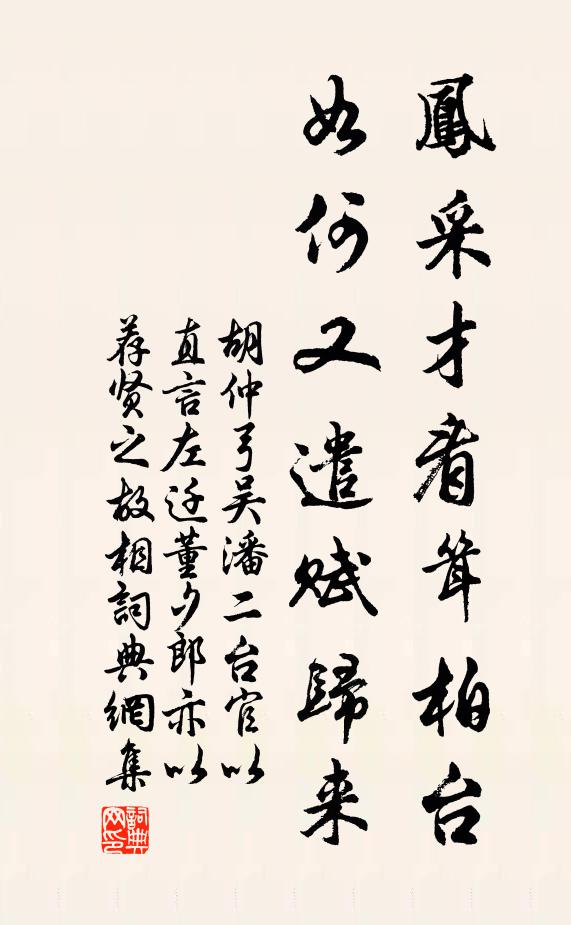 鳳采才看耸柏台
如何又遣赋歸来
胡仲弓吴潘二台官以
直言左迁董夕郎亦以
荐贤之故相詞典網集
詞典网印